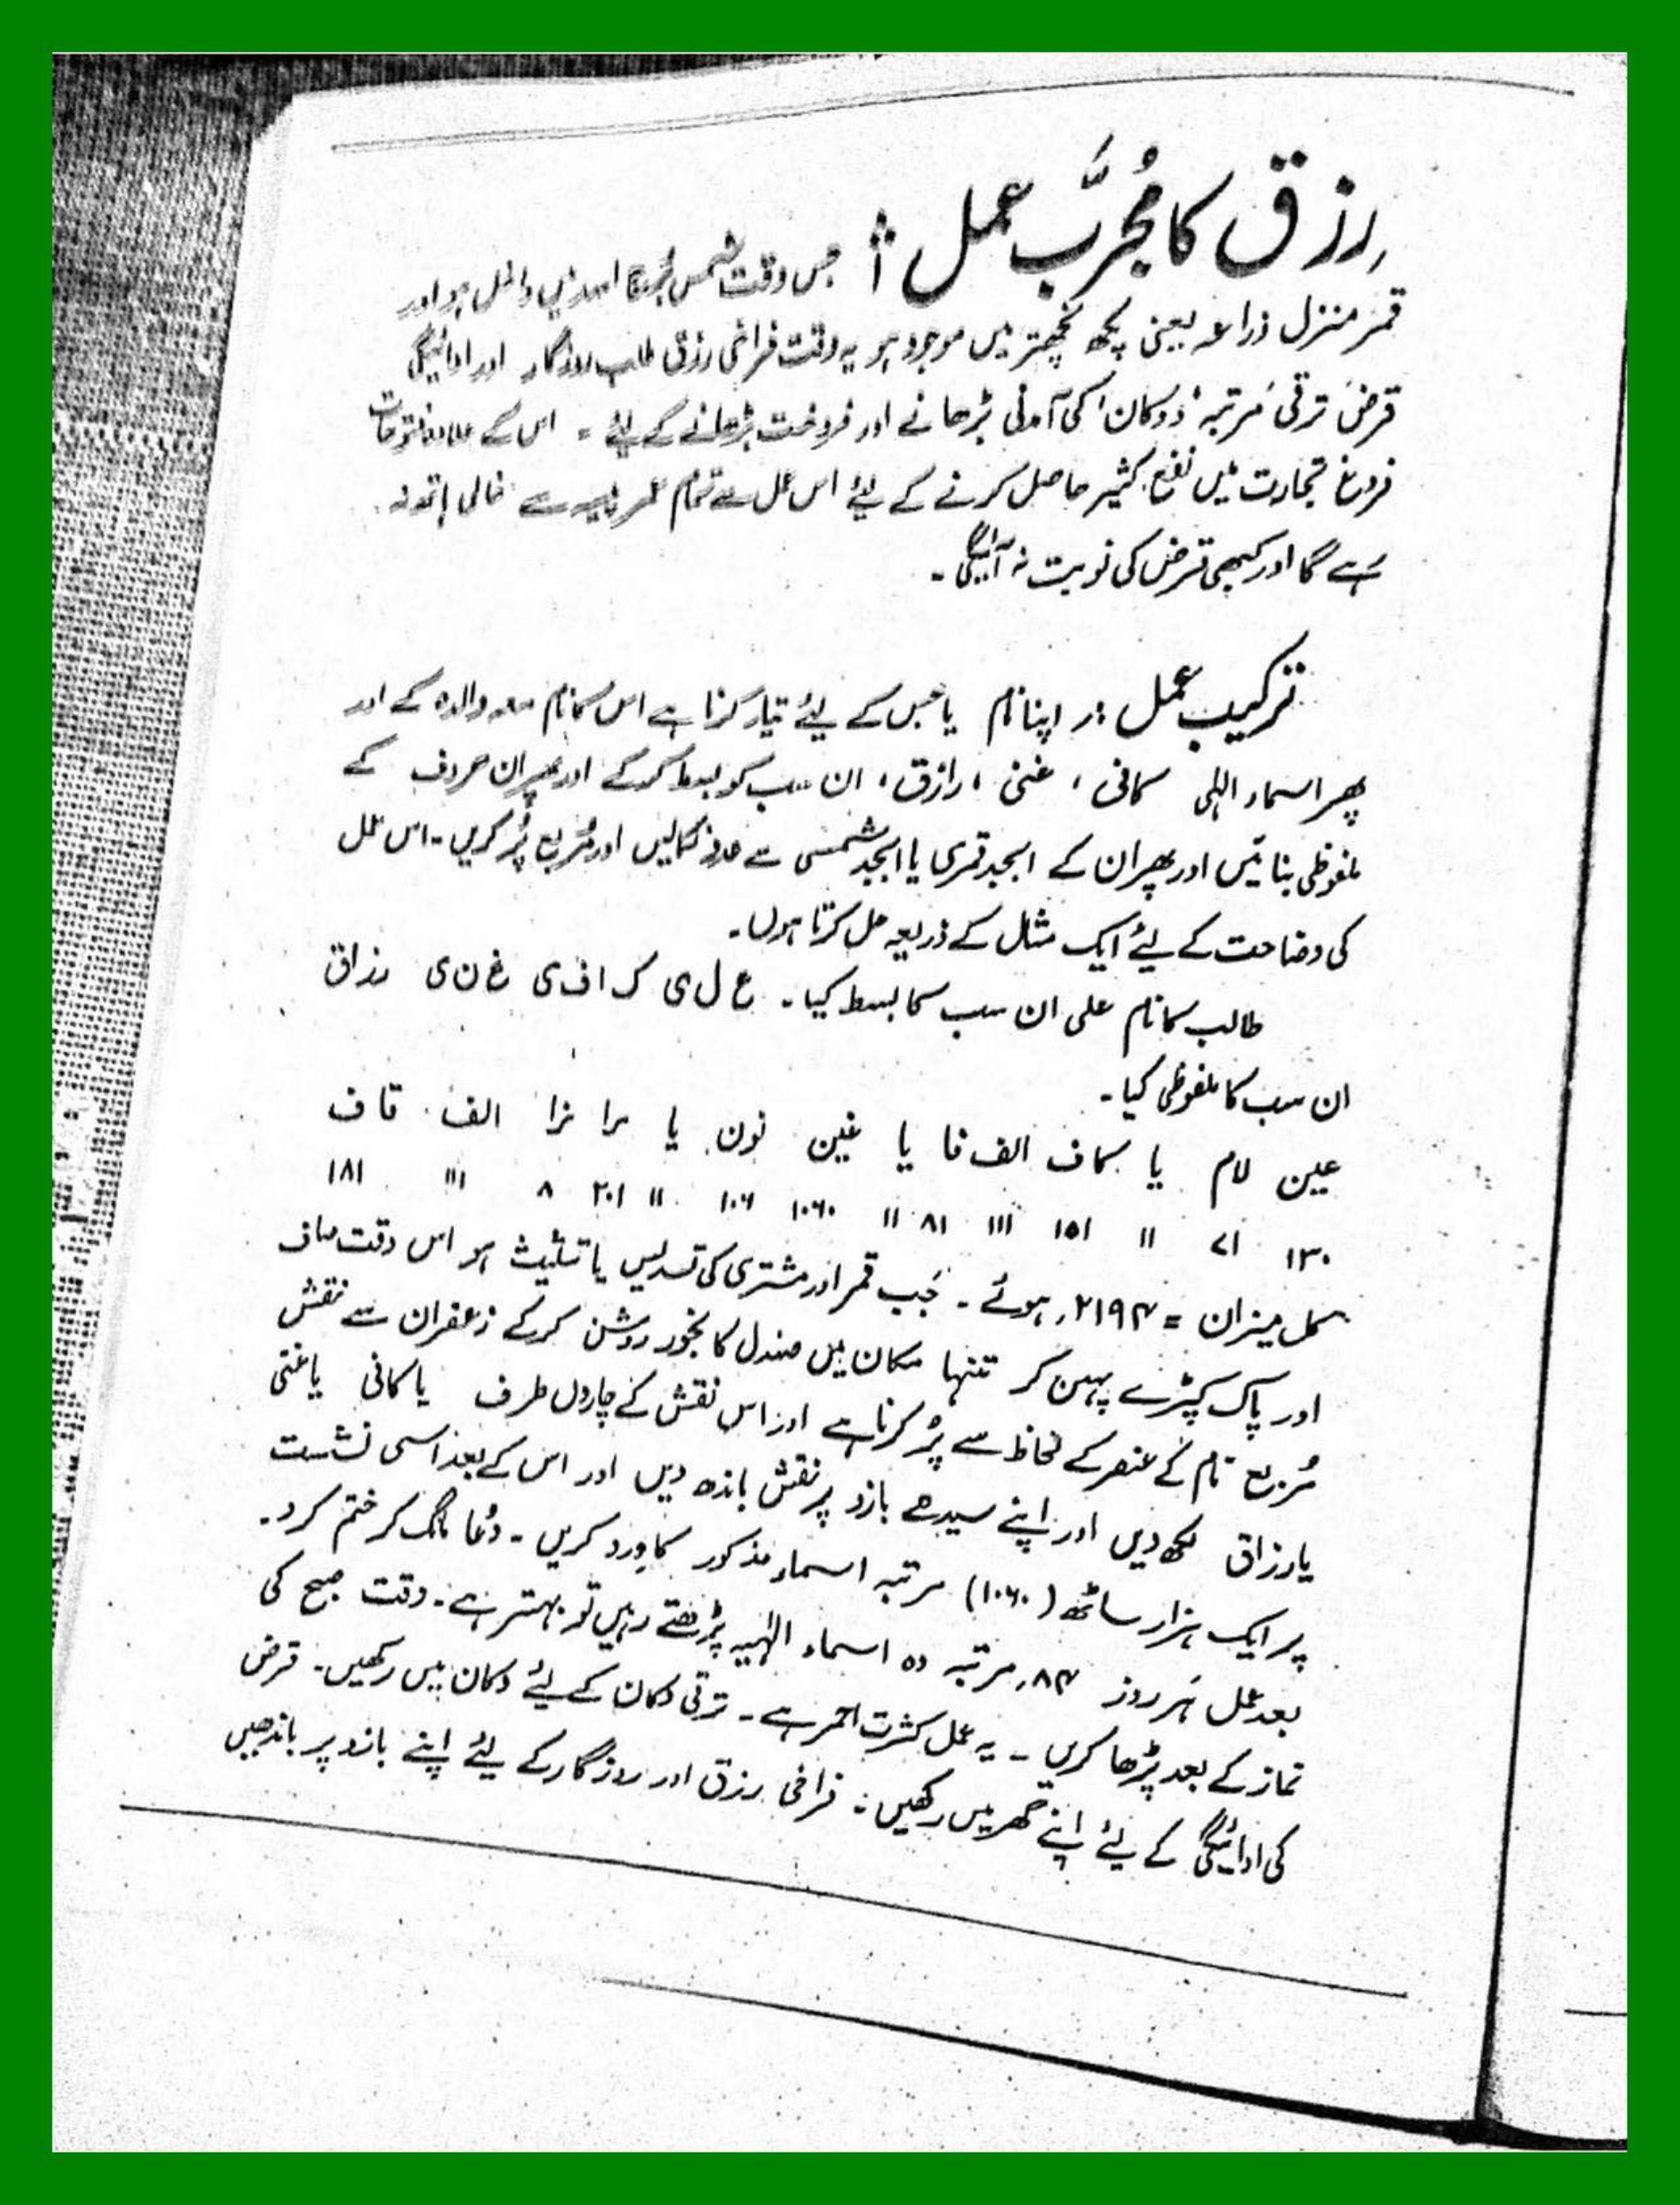 رزق کا مُجرَّب عمل :۔ جس وقت شمس بُرج اسد میں داخل ہو اور
قمر منزل ذراعہ یعنی پکھ نچھتر میں موجود ہو یہ وقت فراخی رزق طلب روزگار اور ادائیگی
قرض، ترقی مرتبہ، دوکان کی آمدنی بڑھانے اور فروخت بڑھانے کے لیئے ۔ اس کے علاوہ فتوحات
فروغ تجارت میں نفع کثیر حاصل کرنے کے لیئے اس عمل سے تمام عمر پیسہ سے خالی ہاتھ نہ
رہے گا اور کبھی قرض کی نوبت نہ آئیگی ۔
ترکیب عمل :۔ اپنا نام یا جس کے لیئے تیار کرنا ہے اس کا نام معہ والدہ کے اور
پھر اسماء الٰہی کافی ، غنی ، رازق ، ان سب کو بسط کرکے اور پھر ان حروف کے
ملفوظی بنائیں اور پھر ان کے ابجد قمری یا ابجد شمسی سے عدد نکالیں اور مُربع پُر کریں ۔ اس عمل
کی وضاحت کے لیئے ایک مثال کے ذریعہ حل کرتا ہوں ۔
طالب کا نام علی ان سب کا بسط کیا ۔ ع ل ی ک ا ف ی غ ن ی ر ز ا ق
ان سب کا ملفوظی کیا ۔
عین لام یا کاف الف فا یا غین نون یا را زا الف قاف
۱۳۰ ۷۱ ۱۱ ۱۵۱ ۱۱۱ ۸۱ ۱۱ ۱۰۶۰ ۱۰۶ ۱۱ ۲۰۱ ۸ ۱۱۱ ۱۸۱
کل میزان = ۲۱۹۴ ہوئے ۔ جَب قمر اور مشتری کی تسدیس یا تثلیث ہو اس وقت صاف
اور پاک کپڑے پہن کر تنہا مکان میں صندل کا بخور روشن کرکے زعفران سے نقش
مُربع نام کے عنصر کے لحاظ سے پُر کرنا ہے اور اس نقش کے چاروں طرف یا کافی یا غنی
یا رزاق لکھ دیں اور اپنے سیدھے بازو پر نقش باندھ دیں اور اس کے بعد اسی نشست
پر ایک ہزار ساٹھ (۱۰۶۰) مرتبہ اسماء مذکور کا وِرد کریں ۔ دُعا مانگ کر ختم کرد ۔
بعد عمل ہَر روز ۸۴ مرتبہ دہ اسماء الٰہیہ پڑھتے رہیں تو بہتر ہے ۔ وقت صبح کی
نماز کے بعد پڑھا کریں ۔ یہ عمل کثرت احمر ہے ۔ ترقی دکان کے لیئے دکان میں رکھیں ۔ قرض
کی ادائیگی کے لیئے اپنے گھر میں رکھیں ۔ فراخی رزق اور روزگار کے لیئے اپنے بازو پر باندھیں